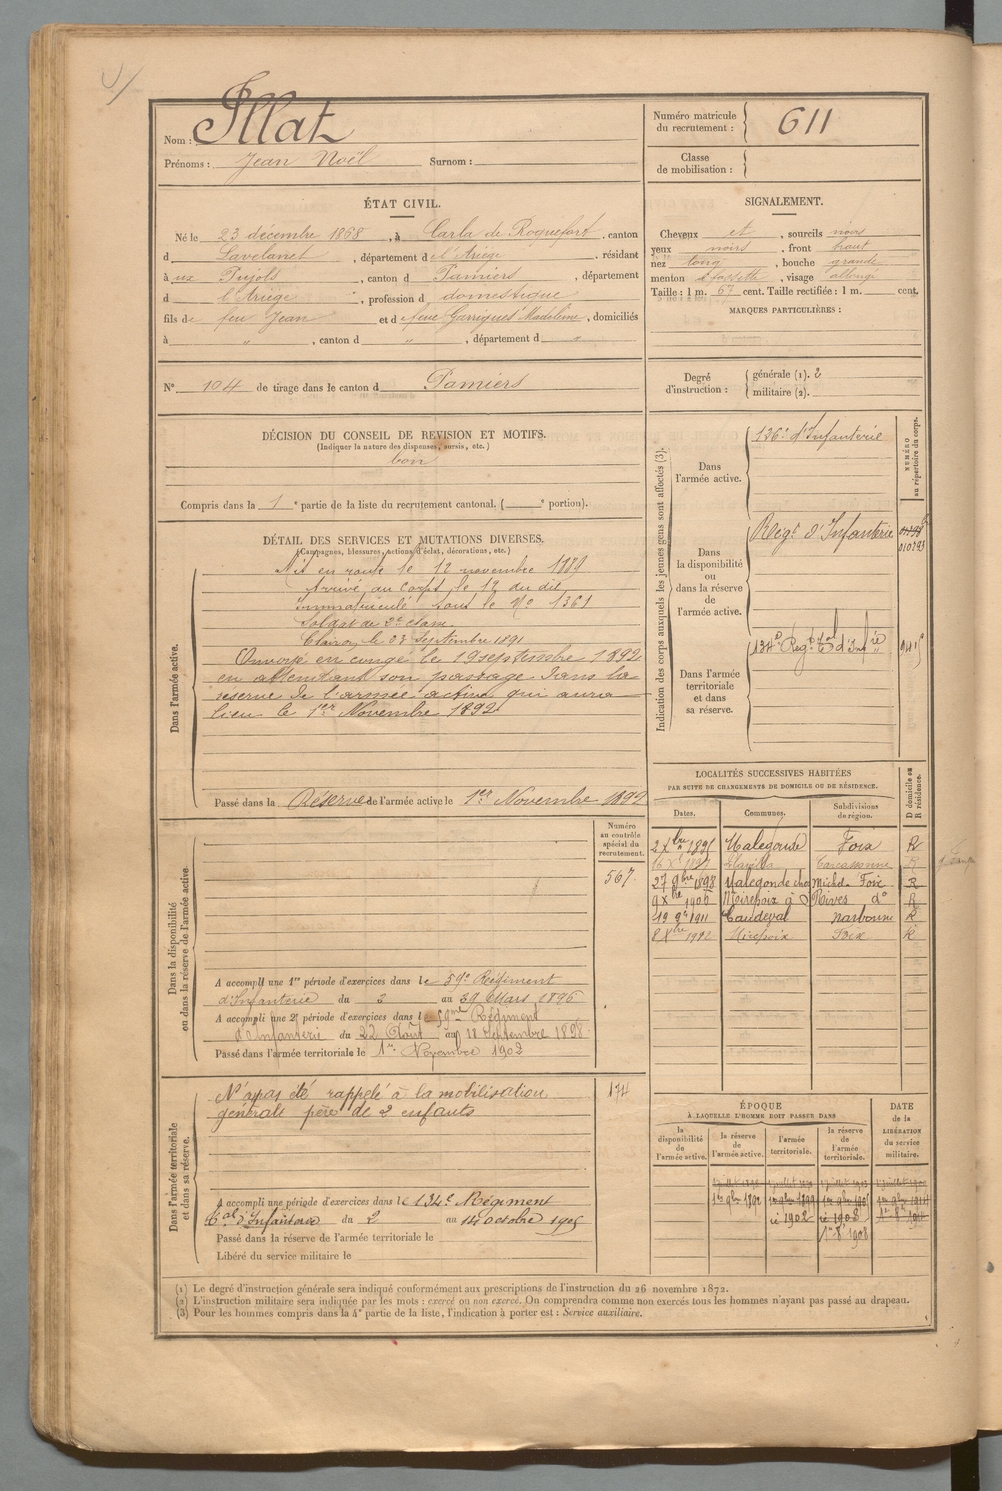 Nom : Illat
Prénoms : Jean Noël Surnom :
Numéro matricule du recrutement : 611
Classe de mobilisation :
ÉTAT CIVIL.
Né le 23 décembre 1868, à Carla de Roquefort, canton
d Lavelanet, département de l'Ariège, résidant
à ux Pujols, canton d Pamiers, département
d l'Ariège, profession d domestique
fils de feu Jean et de feue Garrigues Madeleine, domiciliés
à " , canton d " , département d "
SIGNALEMENT.
Cheveux et , sourcils noirs
yeux noirs , front haut
nez long , bouche grande
menton à fossette , visage allongé
Taille : 1 m. 67 cent. Taille rectifiée : 1 m. cent.
MARQUES PARTICULIÈRES :
N° 104 de tirage dans le canton d Pamiers
Degré d'instruction : générale (1). 2
militaire (2).
DÉCISION DU CONSEIL DE REVISION ET MOTIFS.
(Indiquer la nature des dispenses, sursis, etc.)
bon
Compris dans la 1e partie de la liste du recrutement cantonal. ( e portion).
DÉTAIL DES SERVICES ET MUTATIONS DIVERSES.
(Campagnes, blessures, actions d'éclat, décorations, etc.)
Dans l'armée active.
Mis en route le 12 novembre 1889
Arrivé au corps le 12 du dit
immatriculé sous le No 1361
Soldat de 2e classe
Clairon le 23 Septembre 1891
Envoyé en congé le 19 septembre 1892
en attendant son passage dans la
réserve de l'armée active qui aura
lieu le 1er Novembre 1892
Passé dans la Réserve de l'armée active le 1er Novembre 1892
Indication des corps auxquels les jeunes gens sont affectés (3).
NUMÉRO au répertoire du corps.
Dans l'armée active.
126e d'Infanterie
Dans la disponibilité ou dans la réserve de l'armée active.
Regt d'Infanterie
010793
Dans l'armée territoriale et dans sa réserve.
134e Regt Tal d'Infie
Numéro au contrôle spécial du recrutement.
567
Dans la disponibilité ou dans la réserve de l'armée active
A accompli une 1re période d'exercices dans le 59e Régiment
d'Infanterie du 2 au 29 Mars 1896
A accompli une 2e période d'exercices dans le 59me Régiment
d'Infanterie du 22 Août au 18 Septembre 1898
Passé dans l'armée territoriale le 1er Novembre 1902
LOCALITÉS SUCCESSIVES HABITÉES
PAR SUITE DE CHANGEMENTS DE DOMICILE OU DE RÉSIDENCE.
Dates. Communes. Subdivisions de région. D domicile ou R résidence.
2 Xbre 1895 Malegoude Foix R
16 X 1897 Carcassonne R
27 9bre 1898 Malegoude chez Michel Foix R
9 Xbre 1900 Mirepoix à Rives do R
19 9e 1911 Caudeval Narbonne R
8 Xbre 1912 Mirepoix Foix R
Dans l'armée territoriale et dans sa réserve.
N'a pas été rappelé à la mobilisation
générale père de 2 enfants
174
A accompli une période d'exercices dans le 134e Régiment
Tal d'Infanterie du 2 au 14 octobre 1905
Passé dans la réserve de l'armée territoriale le
Libéré du service militaire le
ÉPOQUE
À LAQUELLE L'HOMME DOIT PASSER DANS
la disponibilité de l'armée active. la réserve de l'armée active. l'armée territoriale. la réserve de l'armée territoriale.
DATE de la LIBÉRATION du service militaire.
1er 9bre 1892 1er 9bre 1899
1902 1908
1er 8 1908
(1) Le degré d'instruction générale sera indiqué conformément aux prescriptions de l'instruction du 26 novembre 1872.
(2) L'instruction militaire sera indiquée par les mots : exercé ou non exercé. On comprendra comme non exercés tous les hommes n'ayant pas passé au drapeau.
(3) Pour les hommes compris dans la 4e partie de la liste, l'indication à porter est : Service auxiliaire.